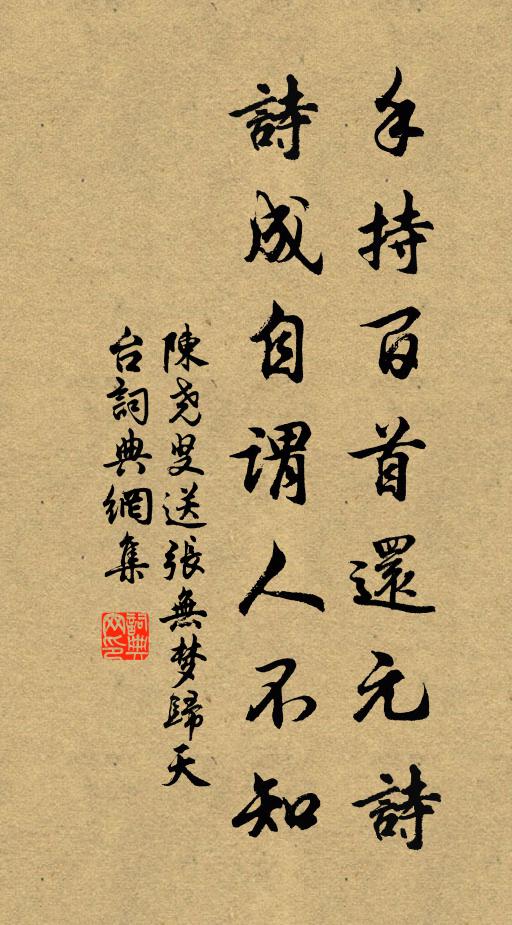 手持百首還元詩
詩成自謂人不知
陳尧叟送張無梦歸天
台詞典網集
詞典
网印